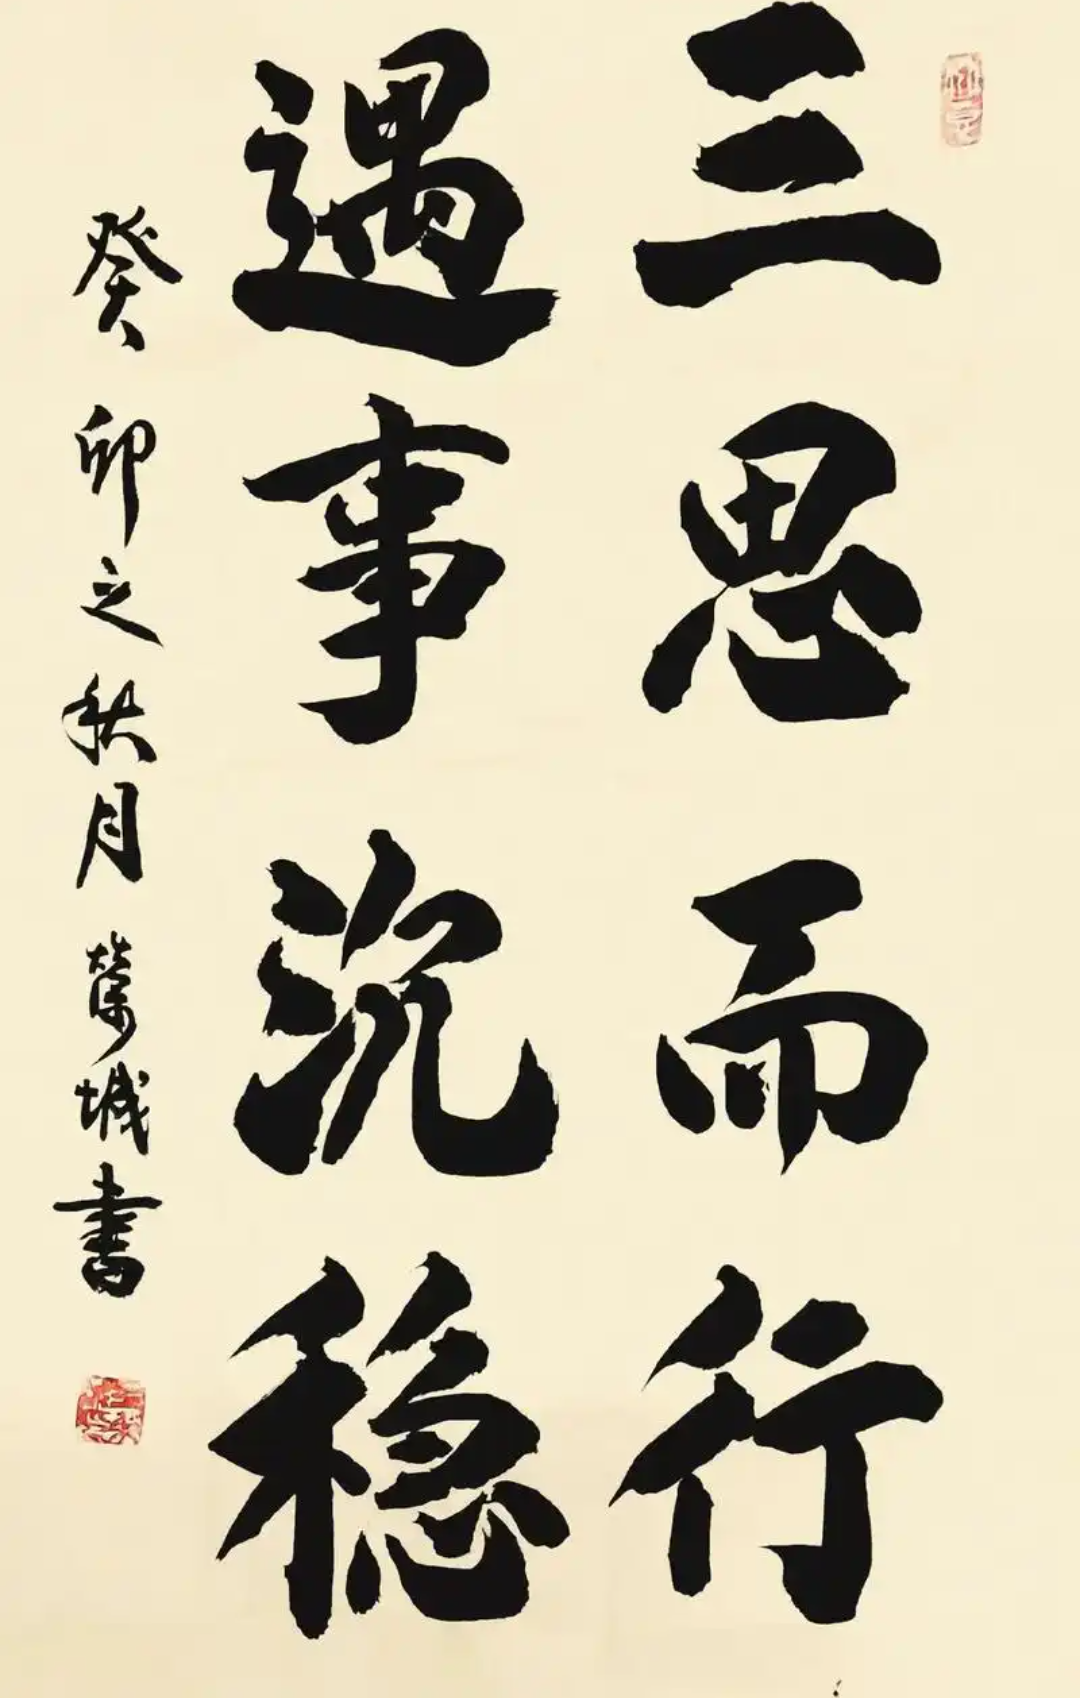 三思而行
遇事沉稳
癸卯之秋月荣城书